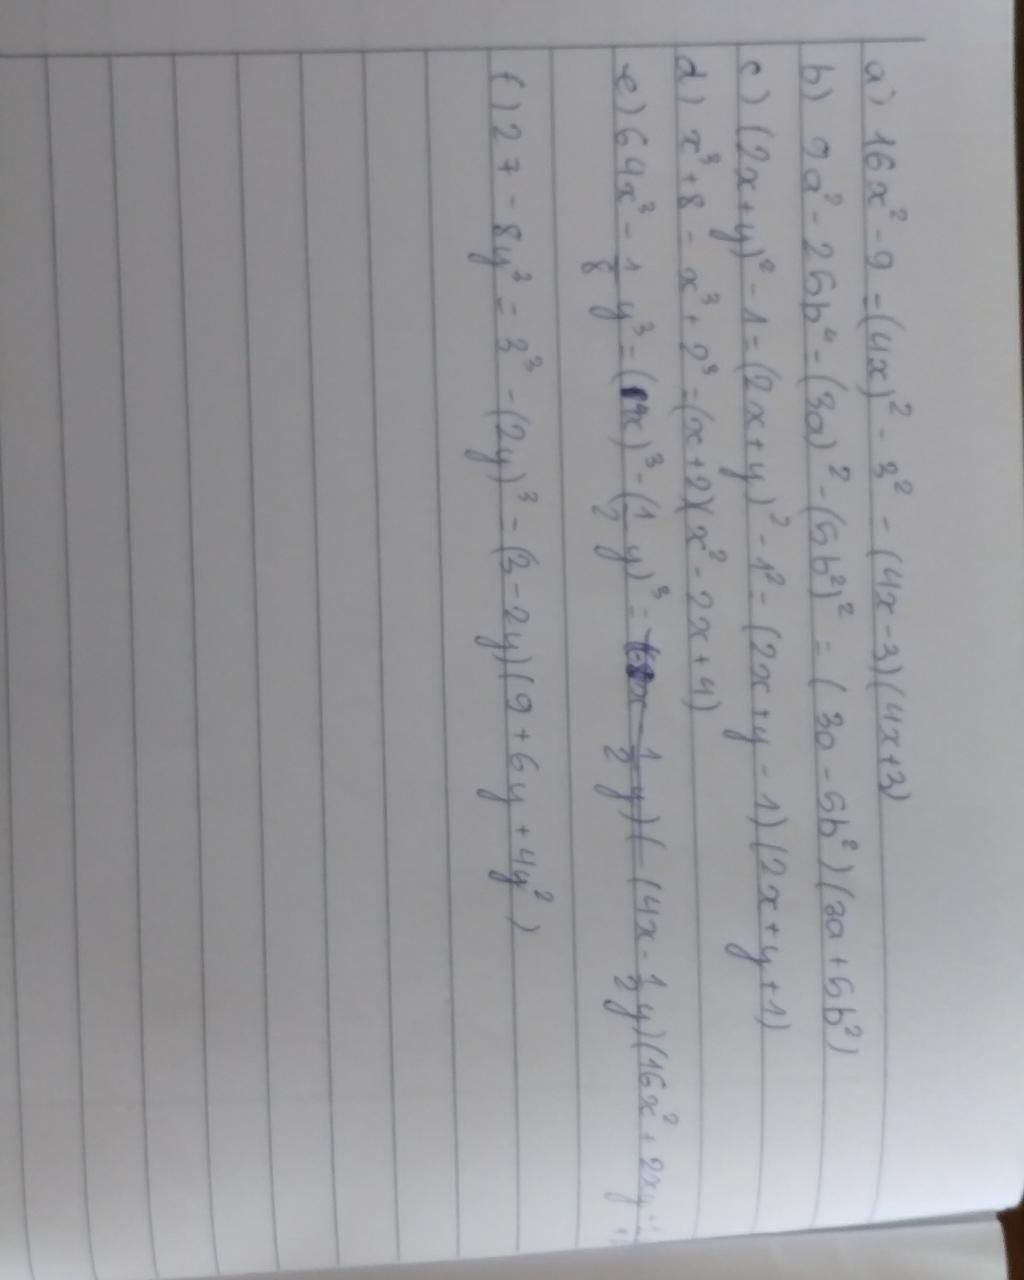 a) 16x² - 9 = (4x)² - 3² = (4x - 3)(4x + 3)
b) 9a² - 25b⁴ = (3a)² - (5b²)² = (3a - 5b²)(3a + 5b²)
c) (2x + y)² - 1 = (2x + y)² - 1² = (2x + y - 1)(2x + y + 1)
d) x³ + 8 = x³ + 2³ = (x + 2)(x² - 2x + 4)
e) 64x³ - 1/8 y³ = (4x)³ - (1/2 y)³ = (4x - 1/2 y)(16x² + 2xy +
f) 27 - 8y³ = 3³ - (2y)³ = (3 - 2y)(9 + 6y + 4y²)